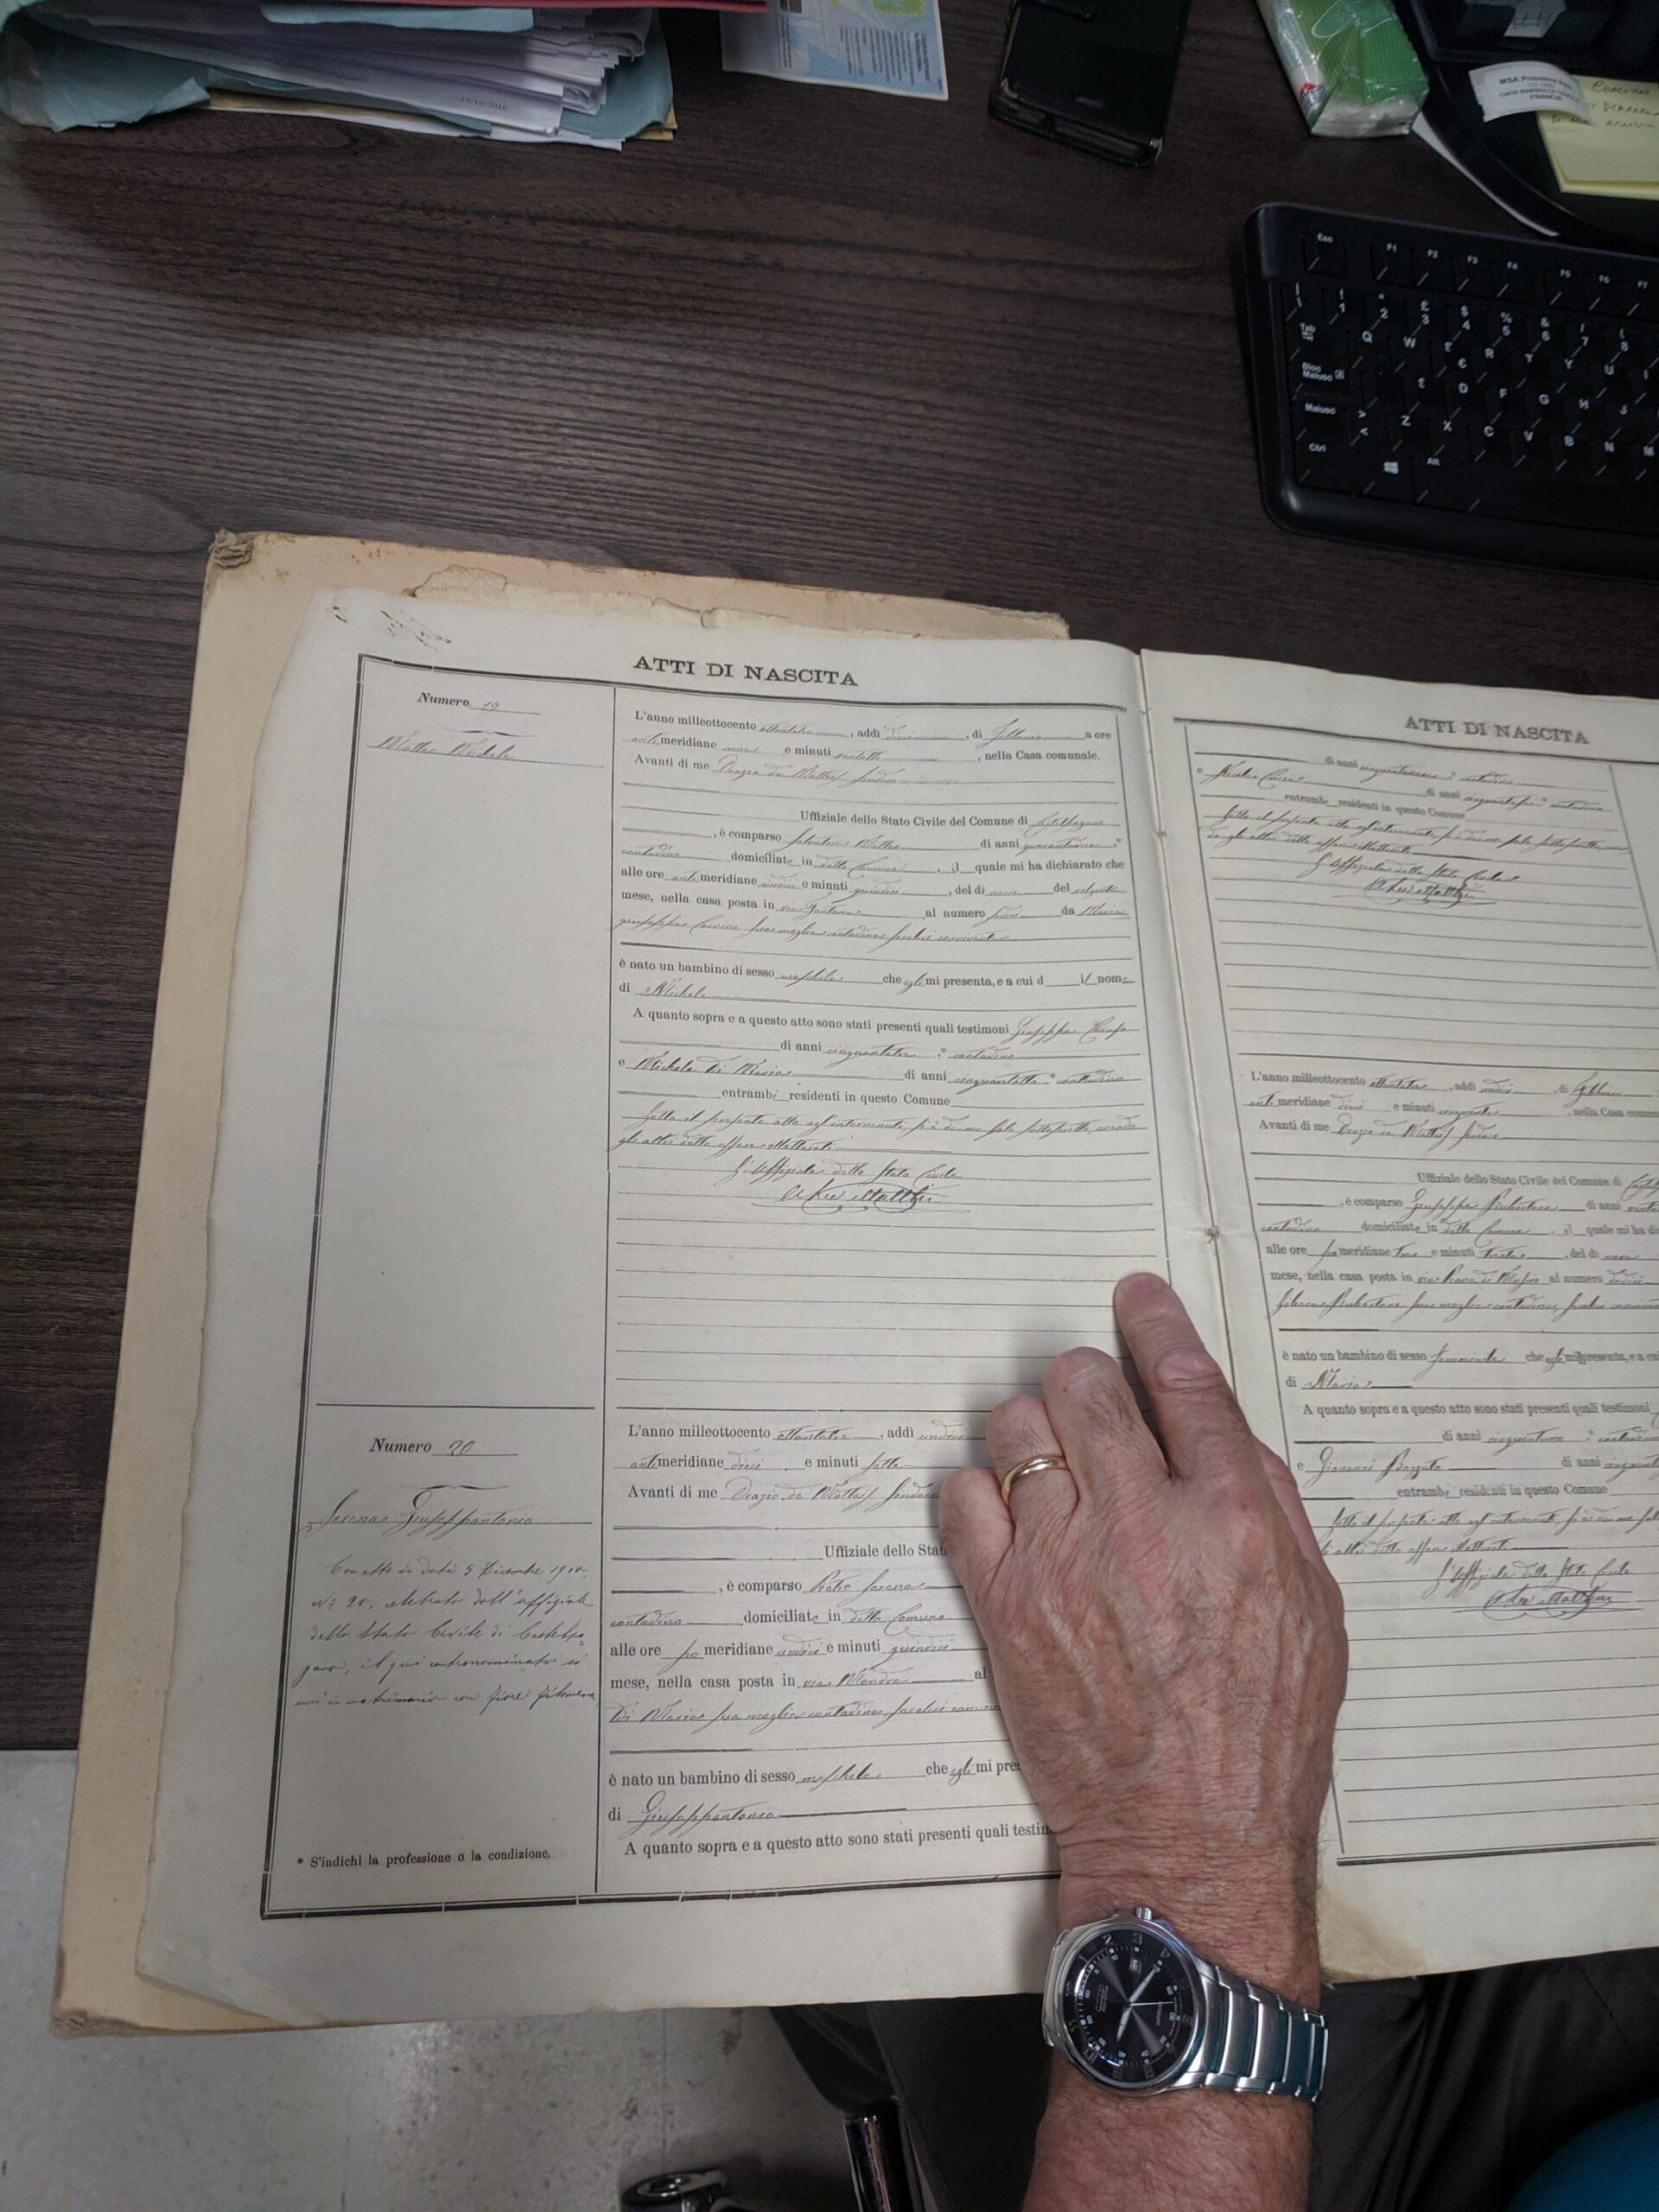 19/10/2016
MSA Provence Azur
FRANCE
Esc F1 F2 F3 F4 F5 F6 F7
Q W E R T Y U
Bloc Maiusc D F G H J
Maiusc Z X C V B N M
Ctrl Alt
ATTI DI NASCITA
Numero 19
Matteo Michele
L'anno milleottocento ottantatre, addì dieci, di Febbraio a ore
antimeridiane nove e minuti ventotto, nella Casa comunale.
Avanti di me Orazio de Matteis Sindaco
Uffiziale dello Stato Civile del Comune di Castelpagano
, è comparso Salvatore Matteo di anni quarantadue *
contadino domiciliato in detto Comune, il quale mi ha dichiarato che
alle ore antimeridiane undici e minuti quindici, del dì nove del
mese, nella casa posta in via Fontana al numero da Maria
giuseppa sua moglie contadina seco lui convivente
è nato un bambino di sesso maschile che egli mi presenta, e a cui d il nome
di Michele
A quanto sopra e a questo atto sono stati presenti quali testimoni Giuseppe
di anni cinquantatre * contadino
e Michele Di Maria di anni cinquantotto * contadino
entrambi residenti in questo Comune
Letto il presente atto agl'intervenuti, si è da me solo sottoscritto, avendo
gli altri detto essere illetterati
L'Uffiziale dello Stato Civile
Numero 20
Serena Giuseppantonio
Con atto in data 5 Dicembre
N° 20, celebrato dall'uffiziale
dello Stato Civile di Castelpa=
gano, il qui contronominato si
unì in matrimonio con Fiore Filomena
* S'indichi la professione o la condizione.
L'anno milleottocento ottantatre, addì undici
antimeridiane dieci e minuti sette
Avanti di me Orazio de Matteis Sindaco
Uffiziale dello Stat
, è comparso Pietro Serena
contadino domiciliato in detto Comune
alle ore pomeridiane undici e minuti quindici
mese, nella casa posta in via Mandra al
Di Maria sua moglie contadina seco lui
è nato un bambino di sesso maschile che egli mi pre
di Giuseppantonio
A quanto sopra e a questo atto sono stati presenti quali testim
ATTI DI NASCITA
di anni cinquantanove * contadino
e Nicola di anni cinquantasei * contadino
entrambi residenti in questo Comune
Letto il presente atto agl'intervenuti, si è da me solo sottoscritto,
gli altri detto essere illetterati
L'Uffiziale dello Stato Civile
L'anno milleottocento ottantatre, addì undici, di Febbraio
antimeridiane dieci e minuti cinquanta, nella Casa comun
Avanti di me Orazio de Matteis Sindaco
Uffiziale dello Stato Civile del Comune di
, è comparso Giuseppe di anni
contadino domiciliato in detto Comune, il quale mi ha di
alle ore pomeridiane tre e minuti trenta, del dì nove
mese, nella casa posta in via al numero dodici
sua moglie contadina, seco lui
è nato un bambino di sesso femminile che egli mi presenta, e a cui
di Maria
A quanto sopra e a questo atto sono stati presenti quali testimoni
di anni * contadino
e Giovanni Bozzuto di anni
entrambi residenti in questo Comune
Letto il presente atto agl'intervenuti, si è da me
altri detto essere illetterati
L'Uffiziale dello Stato Civile